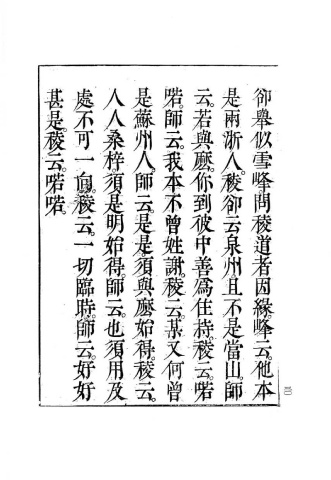 卻舉似雪峰問稜道者因緣峰云他本
是兩浙人稜卻云泉州且不是當山師
云若與麽你到彼中善爲住持稜云喏
喏師云我本不曾姓謝稜云某又何曾
是蘇州人師云是是須與麽始得稜云
人人桑梓須是明始得師云也須用及
處不可一向稜云一切臨時師云好好
甚是稜云喏喏